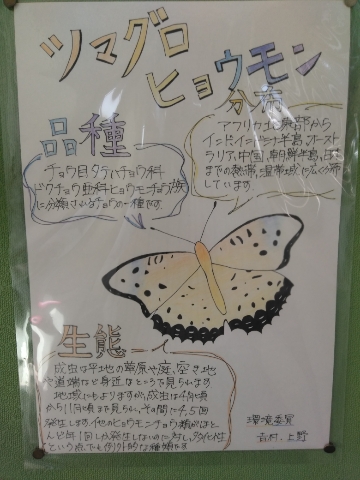 ツマグロ
ヒョウモン
分布
アフリカ北東部から
インド、インドシナ半島、オースト
ラリア、中国、朝鮮半島、日本
までの熱帯、温帯域に広く分布
しています。
品種
チョウ目タテハチョウ科
ドクチョウ亜科ヒョウモンチョウ族
に分類されるチョウの一種です。
生態
成虫は平地の草原や庭、空き地
や道端など身近なところで見られます
地域にもよりますが、成虫は4月頃
から11月頃まで見られ、その間に4,5回
発生します。他のヒョウモンチョウ類がほと
んど年1回しか発生しないのに対し、多化性
という点でも例外的な種類です
環境委員
吉村、上野